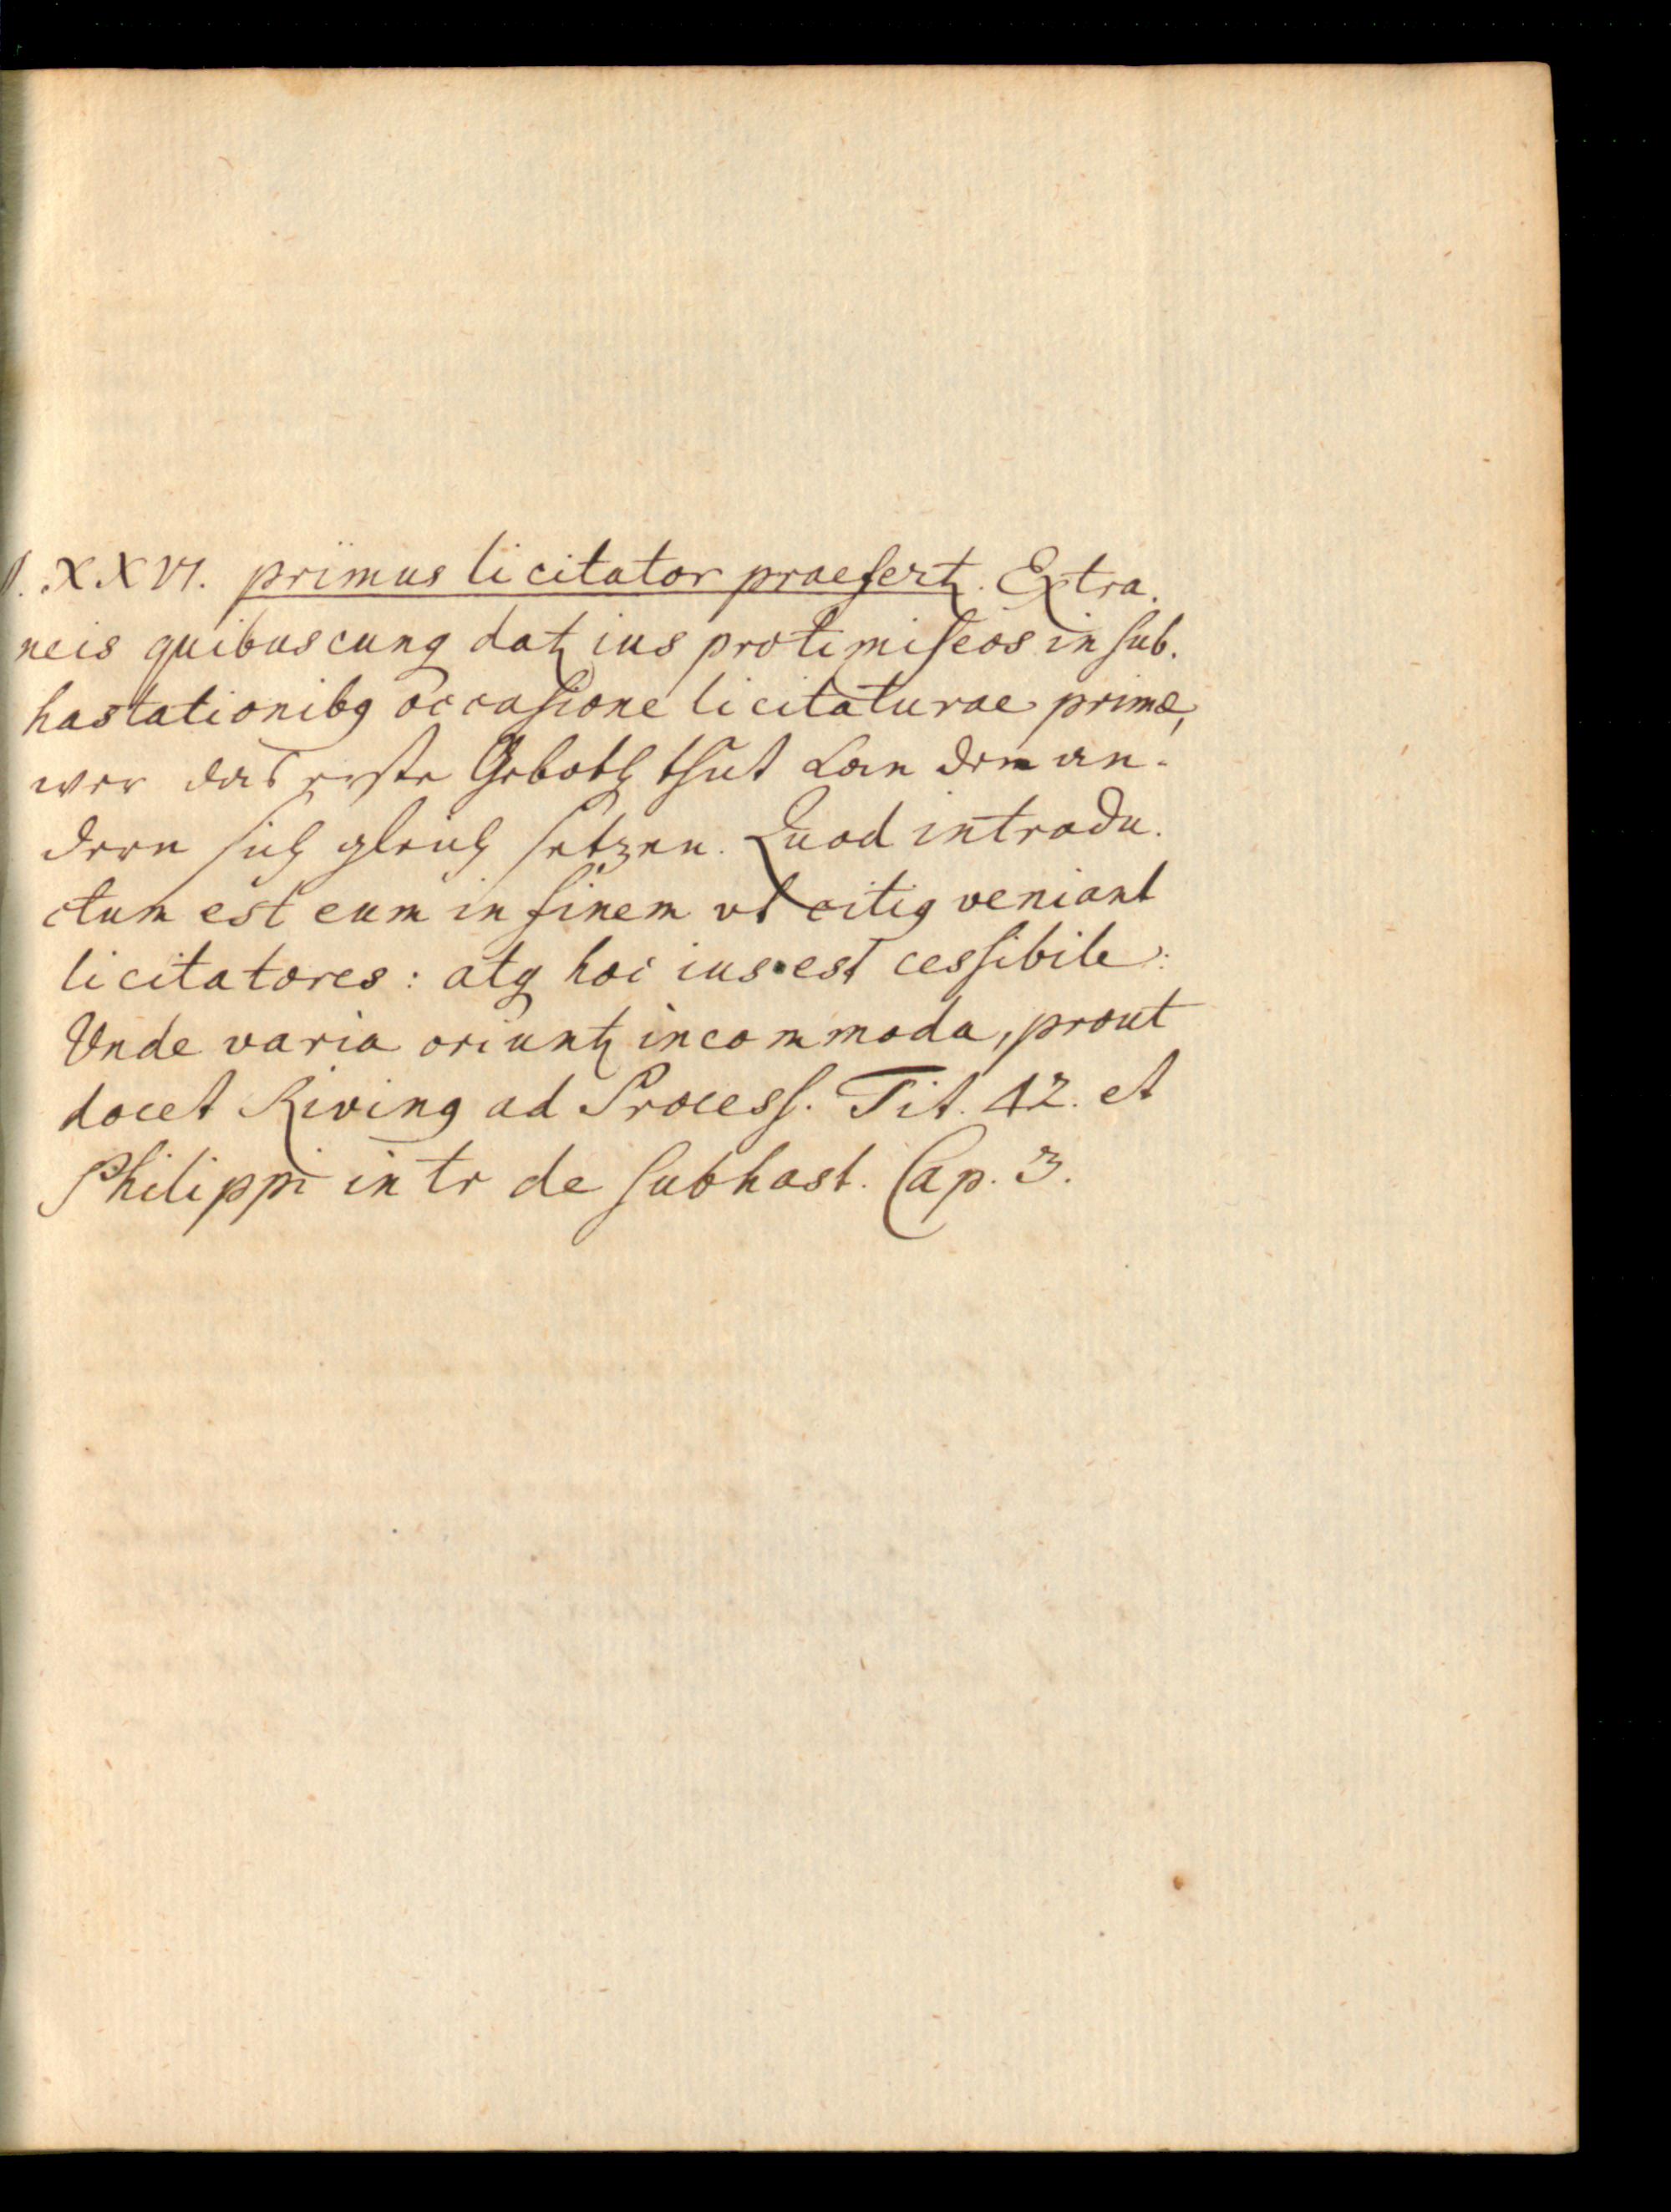 §. XXVI. primus licitator praefertꝛ. Extra.
neis quibuscunqꝫ datꝛ ius protimiseos in sub.
hastationibꝯ occasione licitaturae primæ,
wer das erste Geboth thut kan dem an.
dern sich gleich setzen. Quod introdu.
ctum est eum in finem vt citiꝯ veniant
licitatores: atqꝫ hoc ius est cessibile:
Vnde varia oriuntꝛ incommoda, prout
docet Rivinꝯ ad Process. Tit. 42. et
Philippi in tr de subhast. Cap. 3.